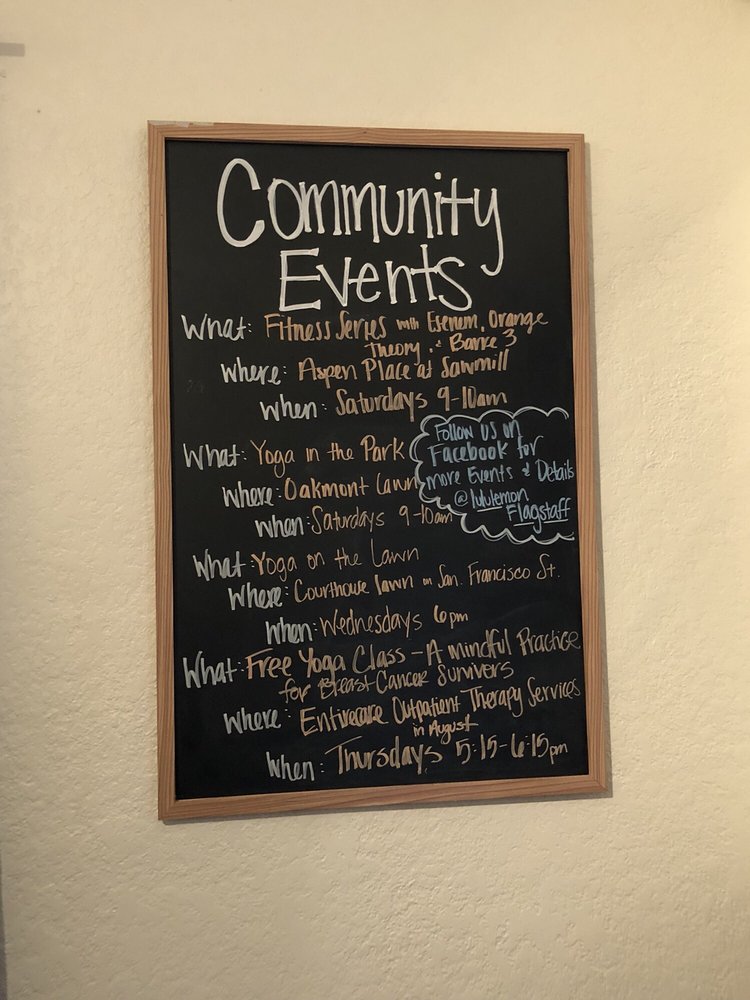 Community
Events
What: Fitness Series with Esenem, Orange
Theory, & Barre 3
Where: Aspen Place at Sawmill
When: Saturdays 9-10am
What: Yoga in the Park
Where: Oakmont Lawn
When: Saturdays 9-10am
Follow us on
Facebook for
more Events & Details
@lululemon
Flagstaff
What: Yoga on the Lawn
Where: Courthouse lawn on San. Francisco St.
When: Wednesdays 6pm
What: Free Yoga Class - A mindful Practice
for Breast Cancer Survivors
Where: Entirecare Outpatient Therapy Services
in August
When: Thursdays 5:15-6:15pm